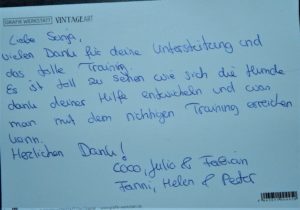 GRAFIK WERKSTATT VINTAGE ART
Liebe Sonja,
vielen Dank für deine Unterstützung und
das tolle Training.
Es ist toll zu sehen wie sich die Hunde
dank deiner Hilfe entwickeln und was
man mit dem richtigen Training erreichen
kann.
Herzlichen Dank!
Coco, Julia & Fabian
Fanni, Helen & Peter